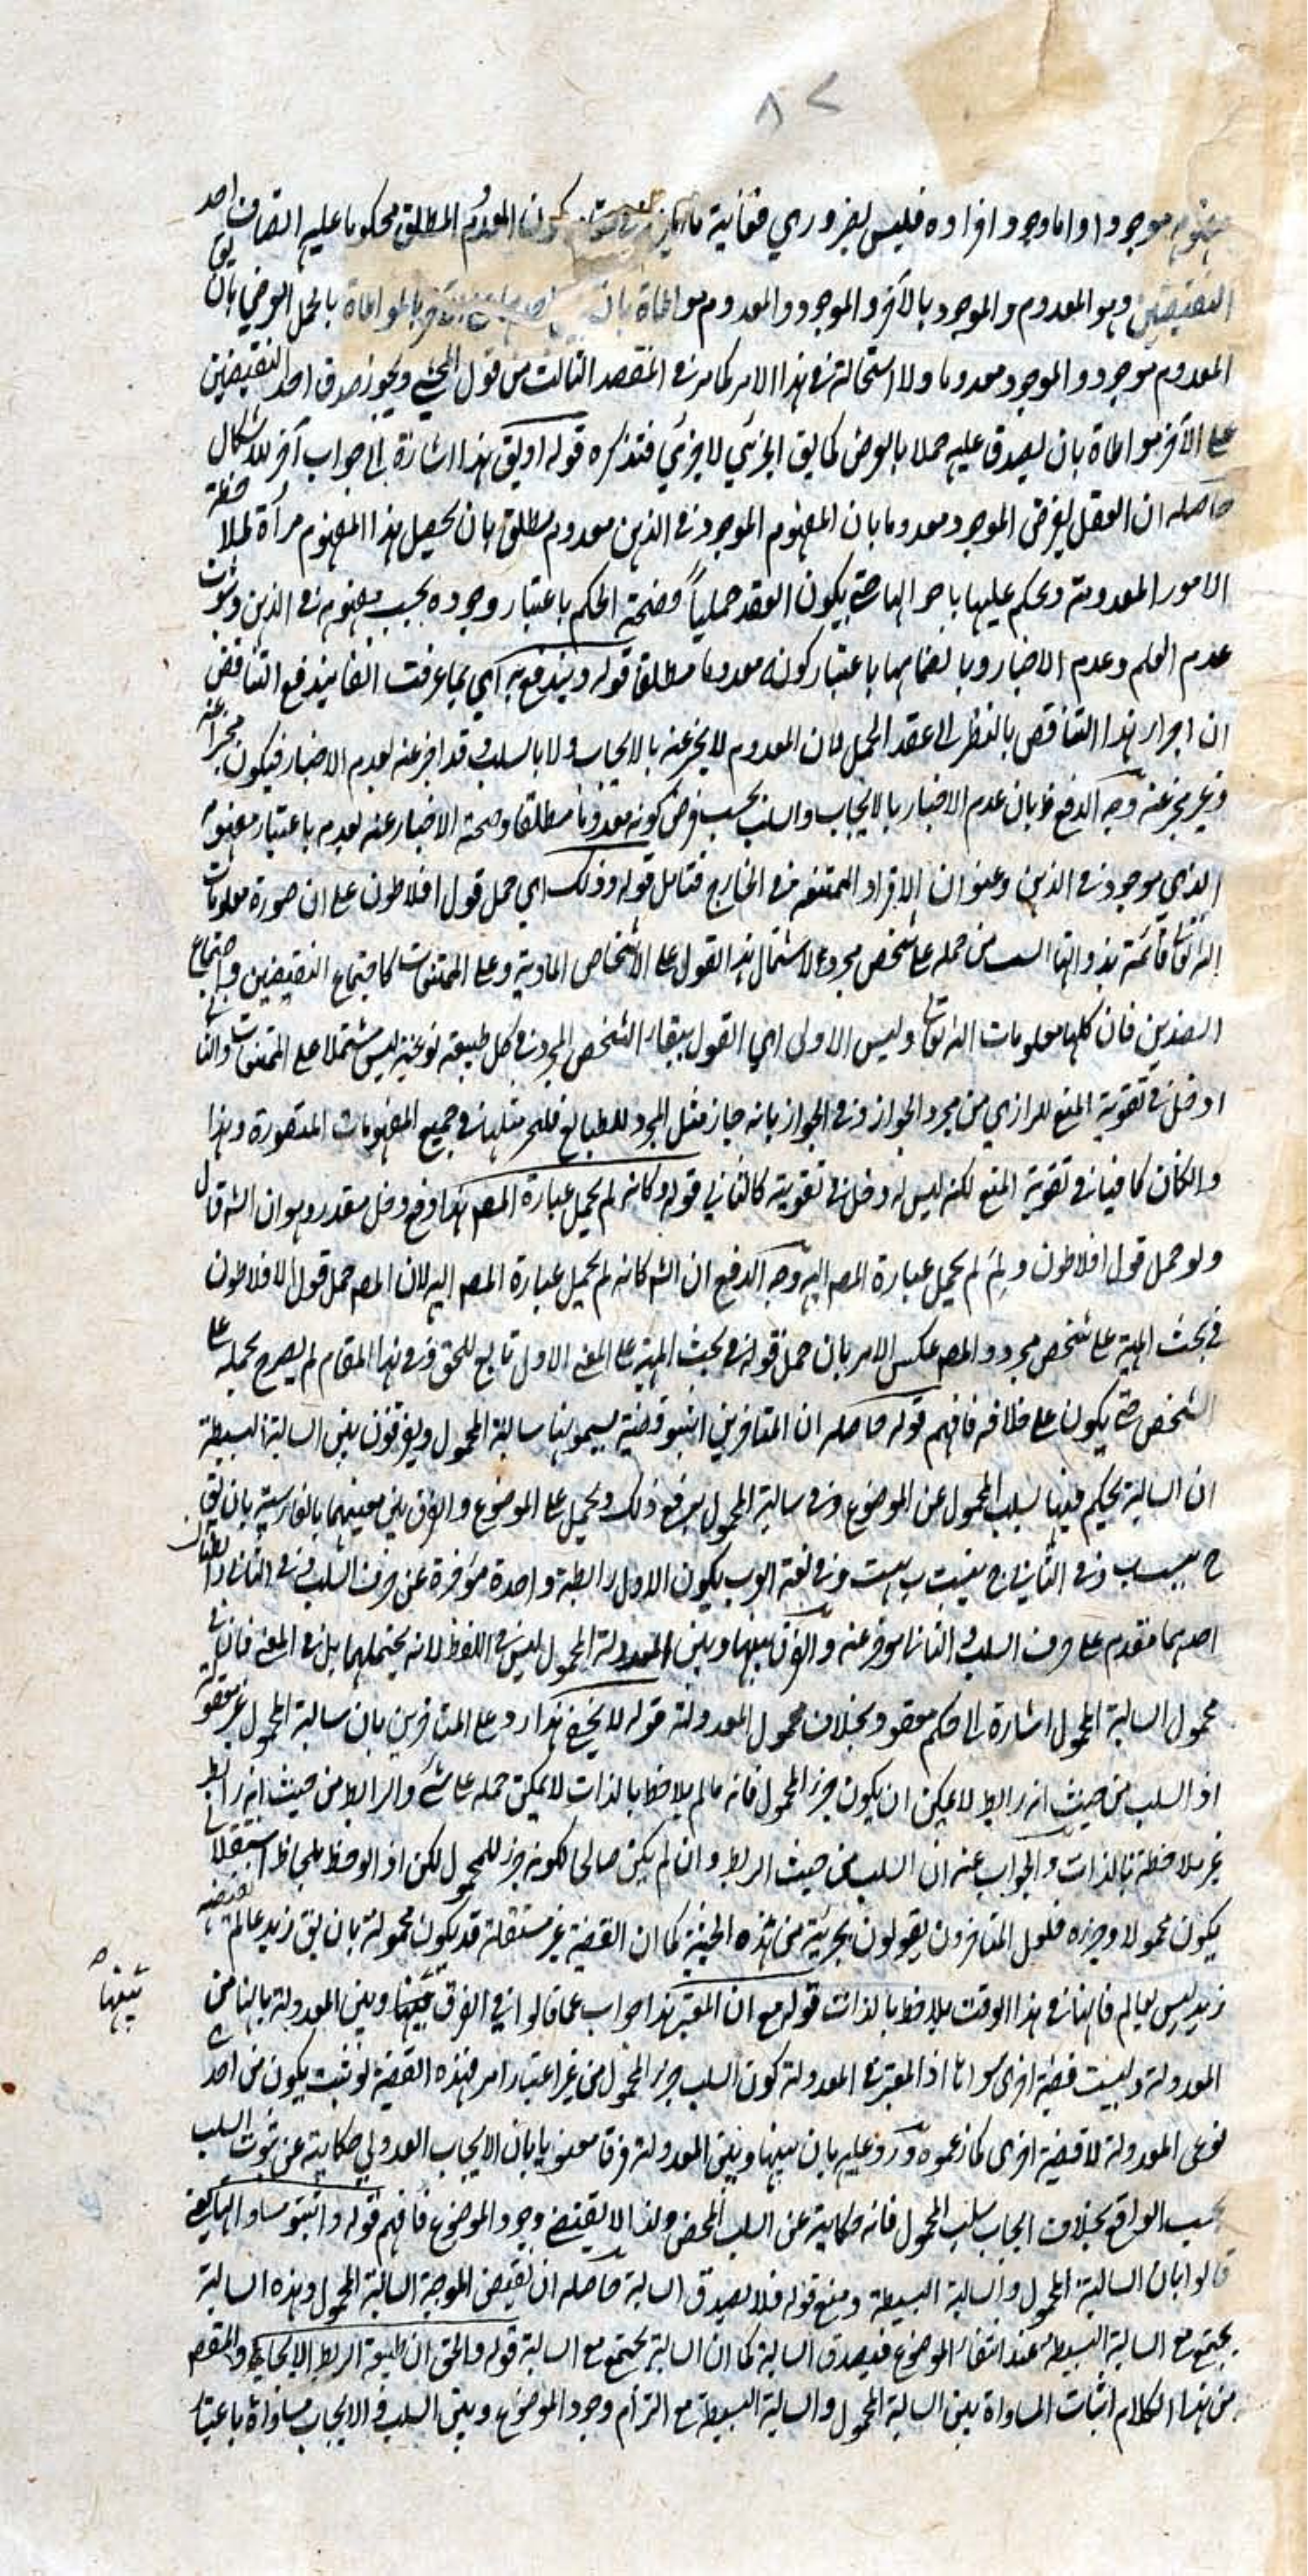 ٨٢
موجودا واما وجود افراده فليس بضروري فغاية ما كون المعدوم المطلق محكوما عليه اتصاف احد
النقيضين وهو المعدوم والموجود بالآخر والموجود والمعدوم مواطاة بان بالمواطاة بالحمل العرضي بان يق
المعدوم موجود والموجود معدوما ولا استحالة في هذا الامر كما مر في المقصد الثالث من قول المحشي ويجوز صدق احد النقيضين
على الآخر مواطاة بان يصدق عليه حملا بالعرض كما يق الجزئي لا جزئي فتذكره قوله او يق هذا اشارة الى جواب آخر للاشكال
حاصله ان العقل يفرض الموجود معدوما بان المفهوم الموجود في الذهن معدوم مطلق بان يحصل هذا المفهوم مرآة لملاحظة
الامور المعدومة ويحكم عليها باحوالها حتى يكون العقد حمليا فصحة الحكم باعتبار وجوده بحسب مفهومه في الذهن وثبوت
عدم العلم وعدم الاخبار وبانضمامها باعتبار كونه معدوما مطلقا قوله ويندفع به اي بما عرفت انفا يندفع التناقض
ان اجرار هذا التناقض بالنظر الى عقد الحمل لان المعدوم لا يخبر عنه بالايجاب ولا بالسلب وقد اخبر عنه بعدم الاخبار فيكون مخبرا عنه
وغير مخبر عنه وجه الدفع بان عدم الاخبار بالايجاب والسلب بحسب فرض كونه معدوما مطلقا وصحة الاخبار عنه بعدم باعتبار مفهومه
الذي موجود في الذهن وعنوان الافراد الممتنعة في الخارج فتامل قوله وذلك اي حمل قول افلاطون على ان صورة معلومات
الله تعالى قائمة بذواتها انسب من حمله على شخص مجرد لاشتمال هذا القول على الاشخاص المادية وعلى الممتنعات كاجتماع النقيضين واجتماع
الضدين فان كلها معلومات الله تعالى وليس الاولى اي القول ببقاء الشخص المجرد في كل طبيعة نوعية ليس مشتملا على الممتنعات والثاني
ادخل في تقوية المنع للرازي من مجرد الجواز وفي الجواز بانه جاز مثل المجرد للطبايع فليجز مثلها في جميع المفهومات المتصورة وهذا
والكان كافيا في تقوية المنع لكنه ليس له دخل في تقويته كالثاني قوله وكانه لم يحمل عبارة المصه هذا دفع دخل مقدر وهو ان الشه قال
ولو حمل قول افلاطون ولم لم يحمل عبارة المصه اليه وجه الدفع ان الشه كانه لم يحمل عبارة المصه اليه لان المصه حمل قول الافلاطون
في بحث المهية على شخص مجرد والمصه عكس الامر بان حمل قوله في بحث المهية على المعنى الاول تابع للحق وفي هذا المقام لم يصرح بحمله على
الشخص حتى يكون على خلافه فافهم قوله حاصله ان المتاخرين اثبتو قضية يسمونها سالبة المحمول ويفرقون بين السالبة البسيطة
ان السالبة يحكم فيها بسلب المحمول عن الموضوع وفي سالبة المحمول يرفع ذلك ويحمل على الموضوع والفرق بين معنيهما بالفارسية بان يق
ج نيست ب وفي الثاني ج نيست ب هست وفي لغة العرب يكون الاول رابطة واحدة مؤخرة عن حرف السلب وفي الثاني رابطتان
احدهما مقدم على حرف السلب والثاني مؤخر عنه والفرق بينها وبين المعدولة المحمول ليس في اللفظ لانه يحتملهما بل في المعنى فان في
محمول السالبة المحمول اشارة الى حكم معقود بخلاف محمول المعدولة قوله لا يخفى هذا رد على المتاخرين بان سالبة المحمول غير معقولة
اذ السلب من حيث انه رابط لا يمكن ان يكون جزء المحمول فانه مالم يلاحظ بالذات لا يمكن حمله على شيء والرابط من حيث انه رابط
غير ملاحظة بالذات والجواب عنه ان السلب من حيث الربط وان لم يكن صالحا لكونه جزء للمحمول لكن اذا لوحظ بلحاظ استقلالي
يكون محمولا وجزءه فلعل المتاخرون يقولون بجزئية من هذه الحيثية كما ان القضية غير مستقلة قد يكون محمولة بان يق زيد عالم نقيضه
زيد ليس بعالم فانها في هذا الوقت يلاحظ بالذات قوله مع ان المعتبر هذا جواب عما قالوا في الفرق بينها وبين المعدولة بانها من
بينها صح
المعدولة وليست قضية اخرى سواها اذ المعتبر في المعدولة كون السلب جزء المحمول من غير اعتبار امر فهذه القضية لو ثبت يكون من احد
نوعى المعدولة لا قضية اخرى كما زعموه ورد عليه بان بينها وبين المعدولة فرقا معنويا بان الايجاب العدولي حكاية عن ثبوت السلب
بحسب الواقع بخلاف ايجاب سلب المحمول فانه حكاية عن السلب المحض ولذا لا يقتضي وجود الموضوع فافهم قوله واثبتو مساواتها يعني
قالوا بان السالبة المحمول والسالبة البسيطة ومنع قوله فلا يصدق السالبة حاصله ان نقيض الموجبة السالبة المحمول وهذه السالبة
يجتمع مع السالبة البسيطة عند انتفاء الموضوع فيصدق السالبة كما ان السالبة يجتمع مع السالبة قوله والحق ان طبيعة الربط الايجابي والمقصود
من هذا الكلام اثبات المساواة بين السالبة المحمول والسالبة البسيطة مع التزام وجود الموضوع وبين السلب والايجاب مساواة باعتبار